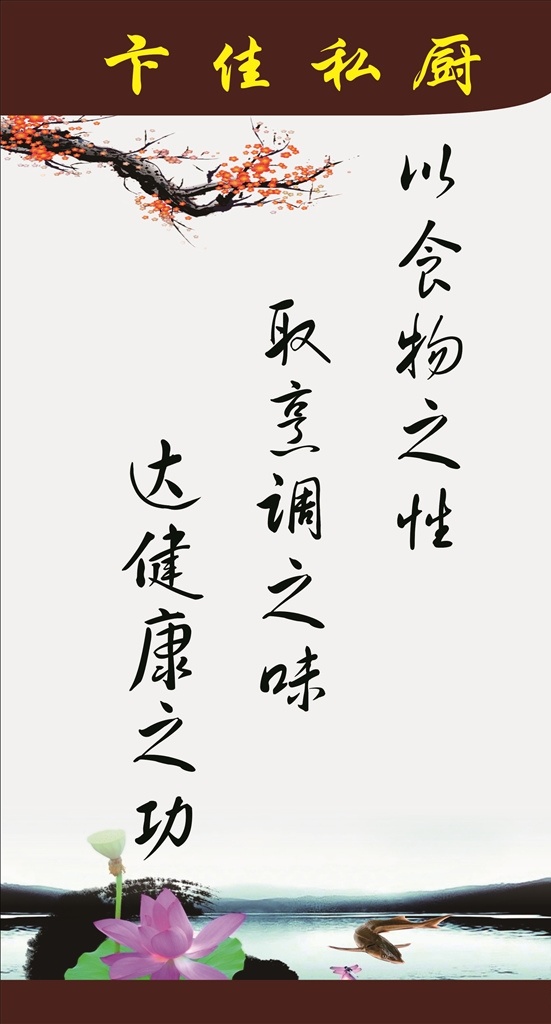 卞佳私厨
以食物之性
取烹调之味
达健康之功